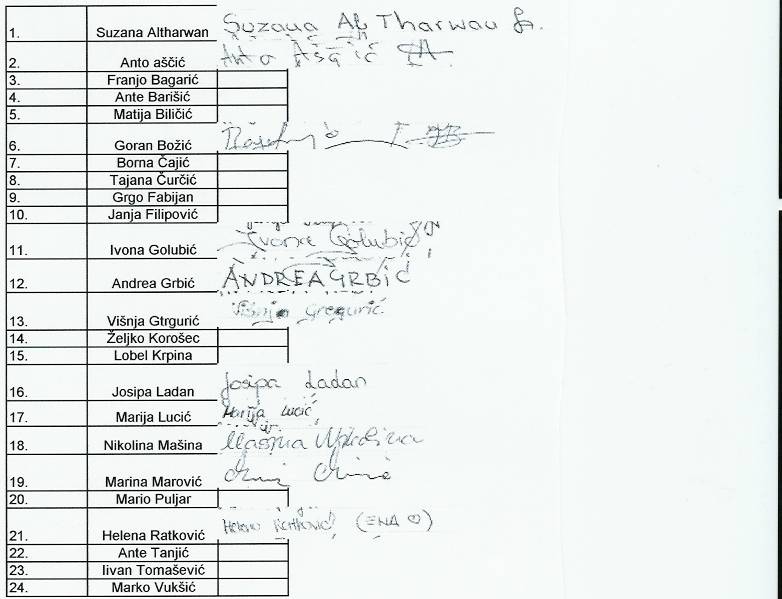 1. Suzana Altharwan Suzana Al Tharwan
2. Anto aščić Anto Aščić
3. Franjo Bagarić
4. Ante Barišić
5. Matija Biličić
6. Goran Božić
7. Borna Čajić
8. Tajana Čurčić
9. Grgo Fabijan
10. Janja Filipović
11. Ivona Golubić Ivona Golubić
12. Andrea Grbić ANDREA GRBIĆ
13. Višnja Gtrgurić Višnja Gregurić
14. Željko Korošec
15. Lobel Krpina
16. Josipa Ladan Josipa Ladan
17. Marija Lucić Marija Lucić
18. Nikolina Mašina Mašina Nikolina
19. Marina Marović
20. Mario Puljar
21. Helena Ratković Helena Ratković (ENA ♡)
22. Ante Tanjić
23. Iivan Tomašević
24. Marko Vukšić